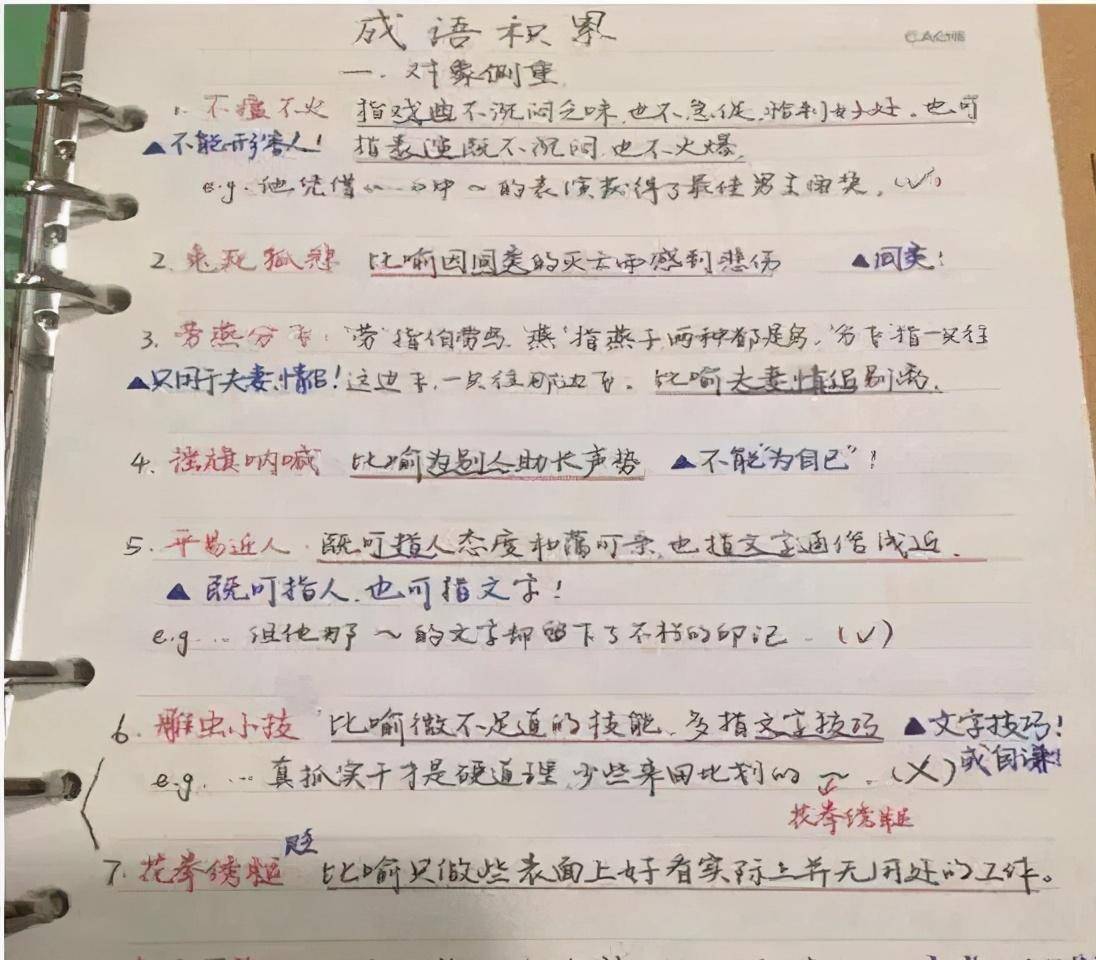 成语积累
一. 对象侧重
1. 不瘟不火 指戏曲不沉闷乏味,也不急促,恰到好处。也可
▲不能形容人! 指表演既不沉闷,也不火爆.
e.g. 他凭借《…》中~的表演获得了最佳男主角奖. (√)
2. 兔死狐悲 比喻因同类的灭亡而感到悲伤 ▲同类!
3. 劳燕分飞: '劳'指伯劳鸟. '燕'指燕子,两种都是鸟. '分飞'指一只往
▲只用于夫妻、情侣! 这边飞,一只往那边飞。比喻夫妻、情侣别离.
4. 摇旗呐喊 比喻为别人助长声势 ▲不能"为自己"!
5. 平易近人. 既可指人态度和蔼可亲,也指文字通俗浅近.
▲ 既可指人,也可指文字!
e.g. … 但他那~的文字却留下了不朽的印记. (√)
6. 雕虫小技 比喻微不足道的技能、多指文字技巧 ▲文字技巧!
或自谦!
e.g. … 真抓实干才是硬道理,少些来回比划的~. (×)
花拳绣腿
7. 花拳绣腿 贬 比喻只做些表面上好看实际上并无用处的工作。